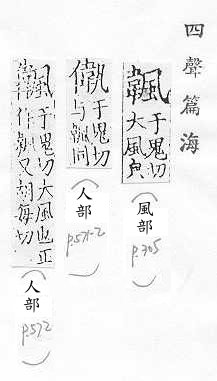 四聲篇海
颹于鬼切
大風皃
（風部）
p.305
于鬼切
與同
（人部）
p.571-2
于鬼切大風也正
作又胡每切
（人部）
p.572